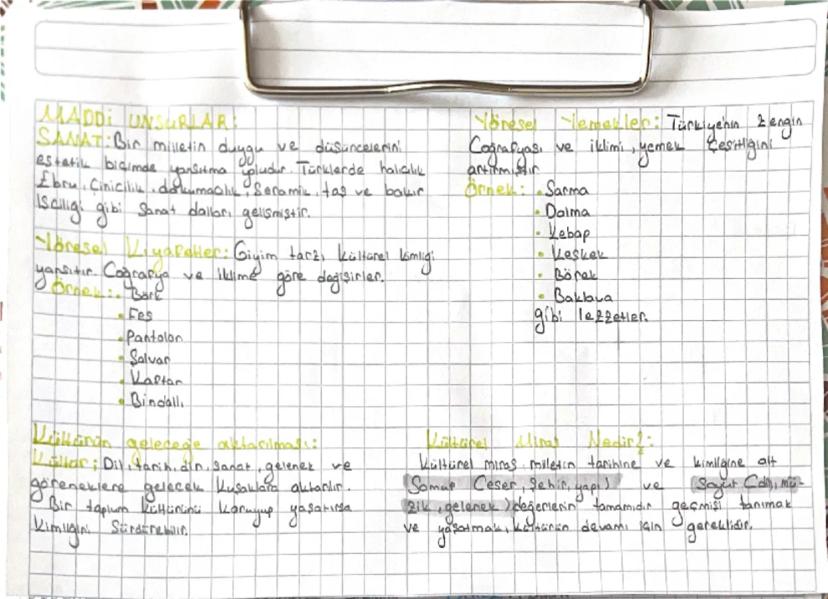 MADDİ UNSURLAR:
SANAT: Bir milletin duygu ve düşüncelerini
estetik biçimde yansıtma yoludur. Türklerde halıcılık
Ebru, Çinicilik, dokumacılık, Seramik, taş ve bakır
İşçiliği gibi Sanat dalları gelişmiştir.
Yöresel Kıyafetler: Giyim tarzı kültürel kimliği
yansıtır. Coğrafya ve iklime göre değişirler.
Örnek: • Börk
• Fes
• Pantolon
• Şalvar
• Kaftan
• Bindallı
Yöresel Yemekler: Türkiye'nin zengin
Coğrafyası ve iklimi, yemek çeşitliğini
artırmıştır
Örnek: • Sarma
• Dolma
• Kebap
• Keşkek
• Börek
• Baklava
gibi lezzetler.
Kültürün geleceğe aktarılması:
Kültür; Dil, tarih, din, sanat, gelenek ve
göreneklere gelecek kuşaklara aktarılır.
Bir toplum kültürünü koruyup yaşatırsa
kimliğini Sürdürebilir.
Kültürel Miras Nedir?:
Kültürel miras, milletin tarihine ve kimliğine ait
Somut (eser, şehir, yapı) ve Soyut (dil, mü-
zik, gelenek) değerlerin tamamıdır geçmişi tanımak
ve yaşatmak, kültürün devamı için gereklidir.